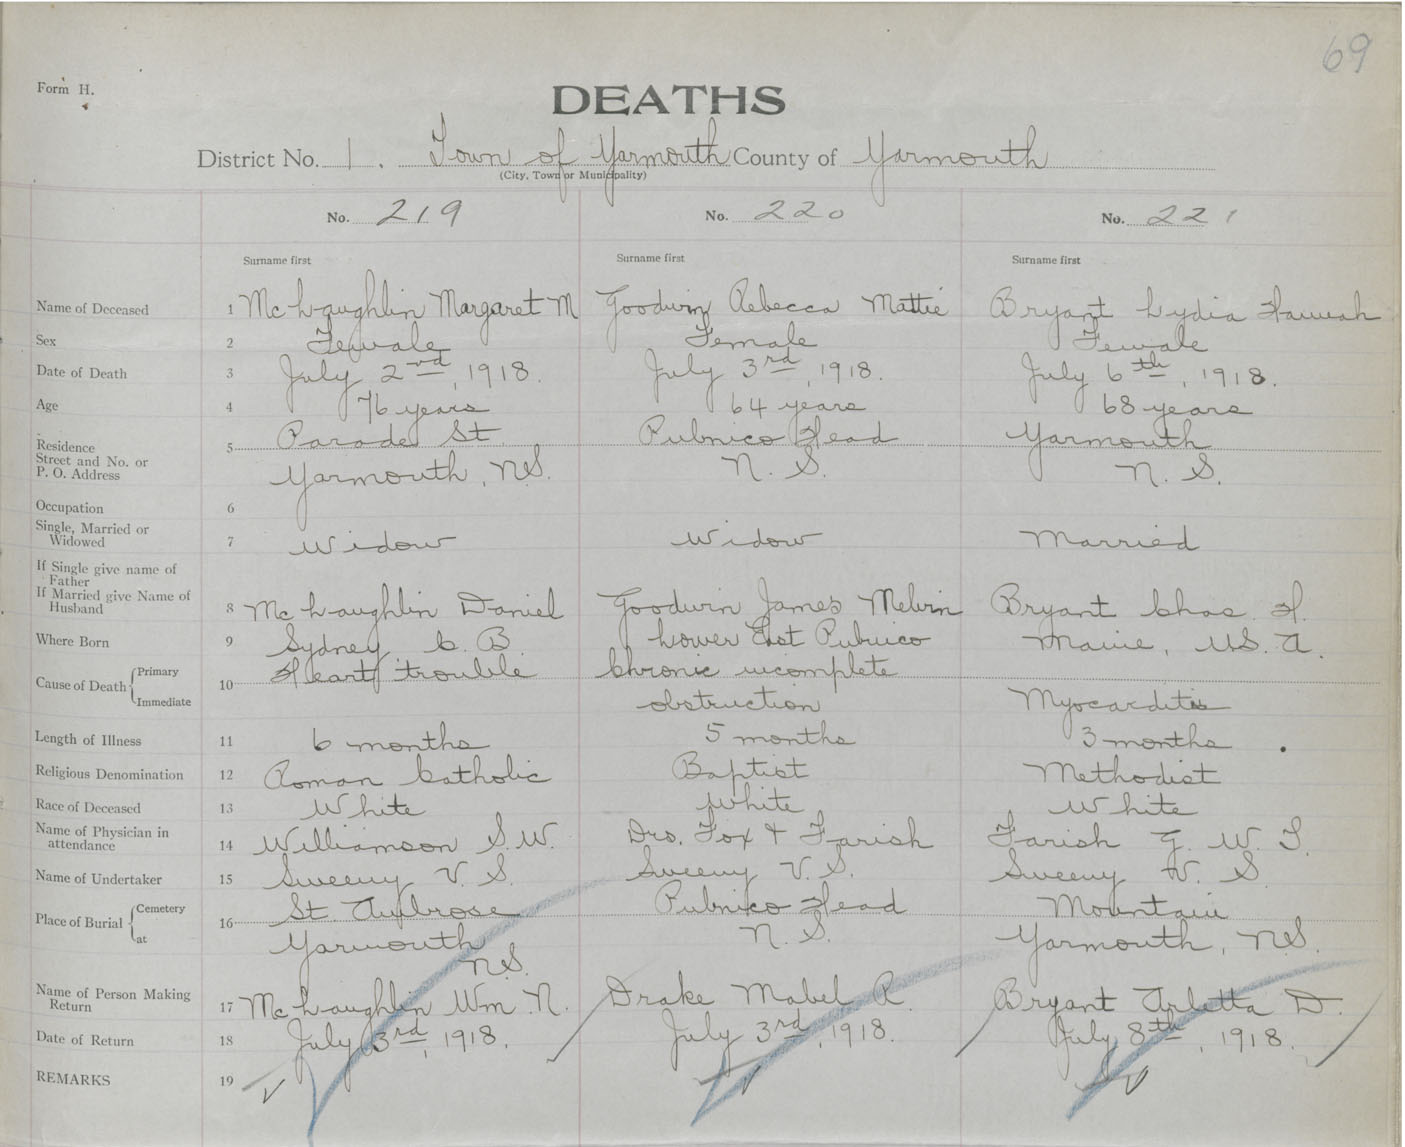 69
Form H.
DEATHS
District No. 1. Town of Yarmouth County of Yarmouth
(City, Town or Municipality)
No. 219 No. 220 No. 221
Surname first Surname first Surname first
Name of Deceased 1 McLaughlin Margaret M Goodwin Rebecca Mattie Bryant Lydia Hannah
Sex 2 Female Female Female
Date of Death 3 July 2nd, 1918. July 3rd, 1918. July 6th, 1918.
Age 4 76 years 64 years 68 years
Residence 5 Parade St Pubnico Head Yarmouth
Street and No. or
P. O. Address Yarmouth, N.S. N. S. N. S.
Occupation 6
Single, Married or
Widowed 7 Widow Widow Married
If Single give name of
Father
If Married give Name of
Husband 8 McLaughlin Daniel Goodwin James Melvin Bryant Chas. H.
Where Born 9 Sydney C. B. Lower East Pubnico Maine, U.S. A.
Cause of Death Primary 10 Heart trouble Chronic incomplete
Immediate obstruction Myocarditis
Length of Illness 11 6 months 5 months 3 months
Religious Denomination 12 Roman Catholic Baptist Methodist
Race of Deceased 13 White White White
Name of Physician in
attendance 14 Williamson S.W. Drs. Fox & Farish Farish G. W. T.
Name of Undertaker 15 Sweeny V. S. Sweeny V. S. Sweeny V. S.
Place of Burial Cemetery 16 St Ambrose Pubnico Head Mountain
at Yarmouth N.S. N. S. Yarmouth, N.S.
Name of Person Making
Return 17 McLaughlin Wm. N. Drake Mabel R. Bryant Arletta D.
Date of Return 18 July 3rd, 1918. July 3rd, 1918. July 8th, 1918.
REMARKS 19